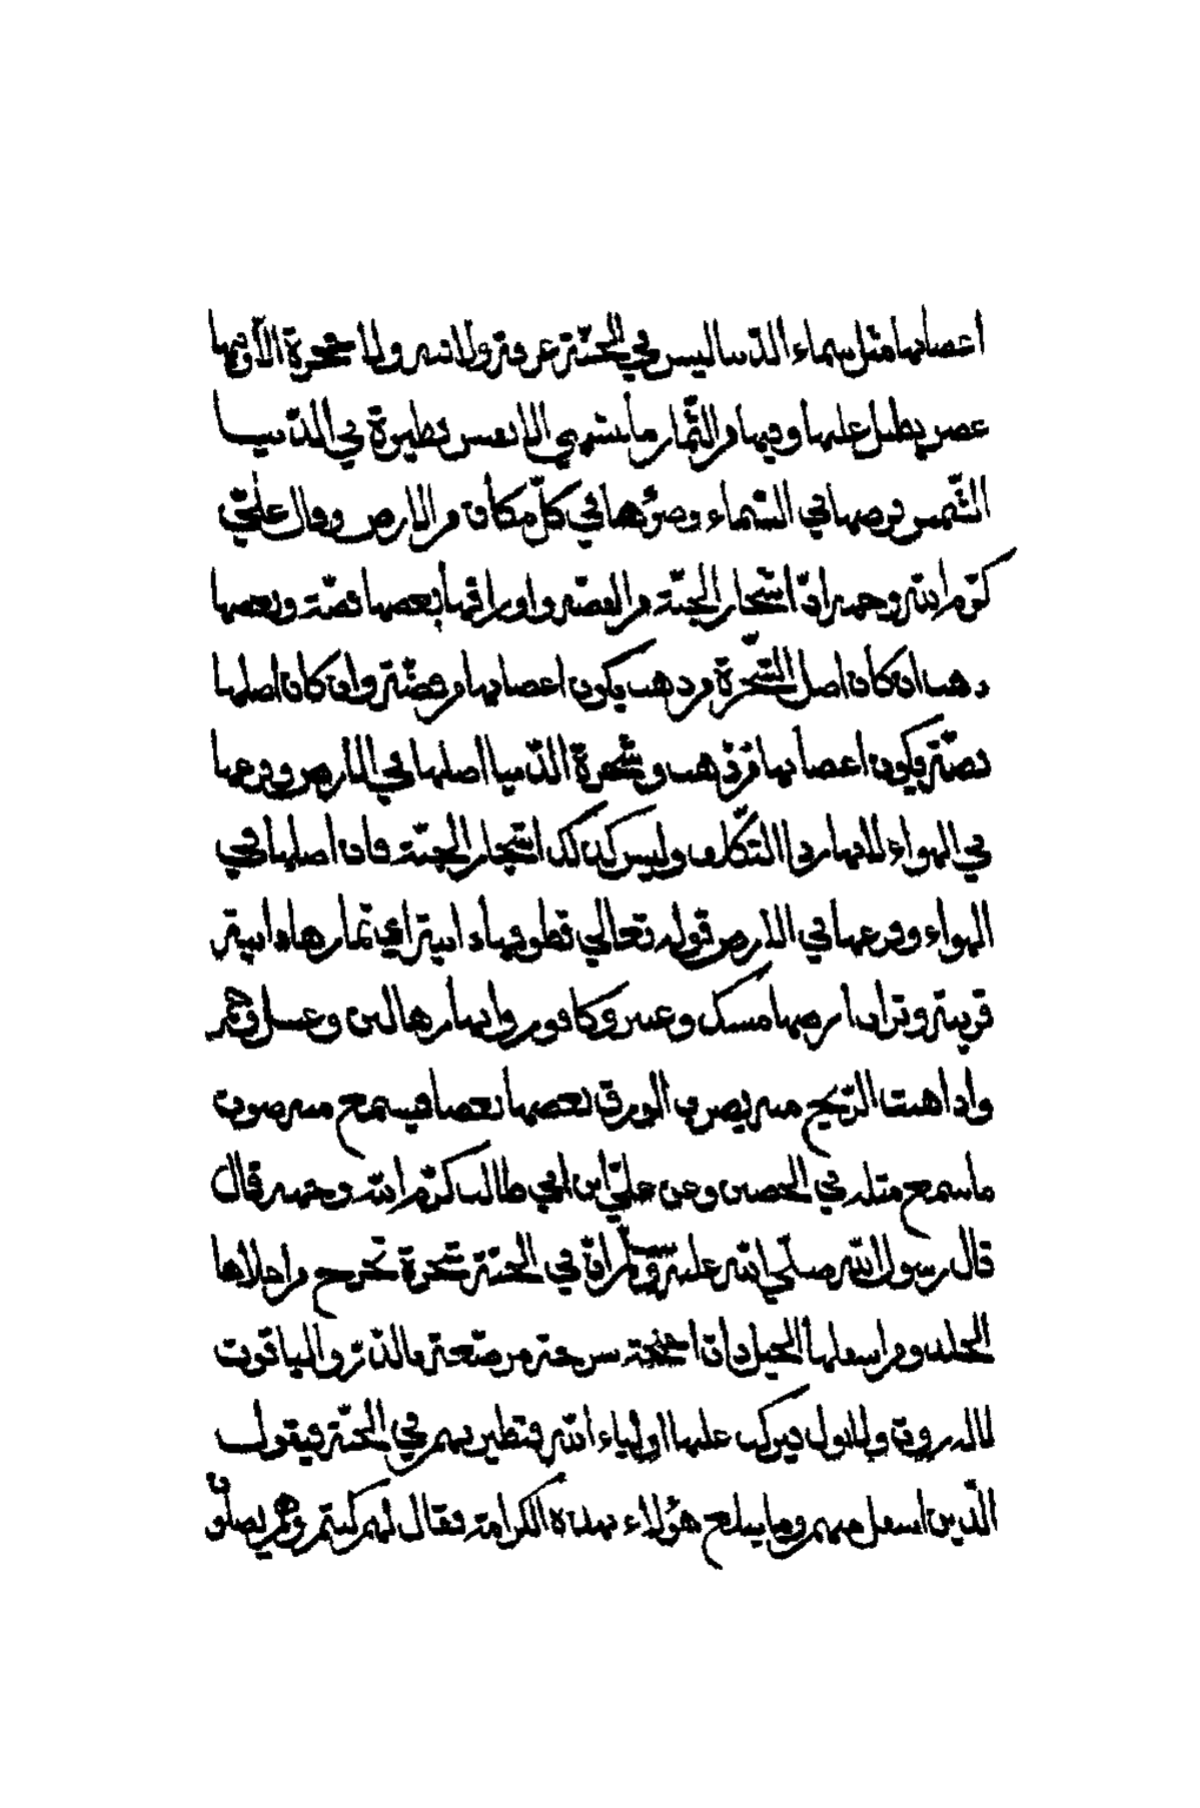 اغصانها مثل سماء الدنيا ليس في الجنة غرفة ولا قبة ولا حجرة الا وفيها
غصن يظل عليها وفيها من الثمار ما تشتهي الانفس نظيرة في الدنيا
الشمس قرصها في السماء وضوءها في كل مكان من الارض وقال علي
كرم الله وجهه ان اشجار الجنة من الفضة واوراقها بعضها فضة وبعضها
ذهب ان كان اصل الشجرة من ذهب يكون اغصانها من فضة وان كان اصلها
فضة يكون اغصانها من ذهب وشجرة الدنيا اصلها في الارض وفرعها
في الهواء لانها دار التكلف وليس كذلك اشجار الجنة فان اصلها في
الهواء وفرعها في الارض قوله تعالى قطوفها دانية اي ثمارها دانية
قريبة وتراب ارضها مسك وعنبر وكافور وانهارها لبن وعسل وخمر
واذا هبت الريح منه يضرب الورق بعضها بعضا فيسمع منه صوت
ما سمع مثله في الحسن وعن علي ابن ابي طالب كرم الله وجهه قال
قال رسول الله صلى الله عليه وسلم ان في الجنة شجرة تخرج من اعلاها
الحلل ومن اسفلها الخيل ذات اجنحة سرجة مرصعة بالدر والياقوت
لا تروث ولا تبول فيركب عليها اولياء الله فتطير بهم في الجنة فيقول
الذين اسفل منهم وما يبلغ هؤلاء بهذه الكرامة فقال لهم كنتم وهم يصلون